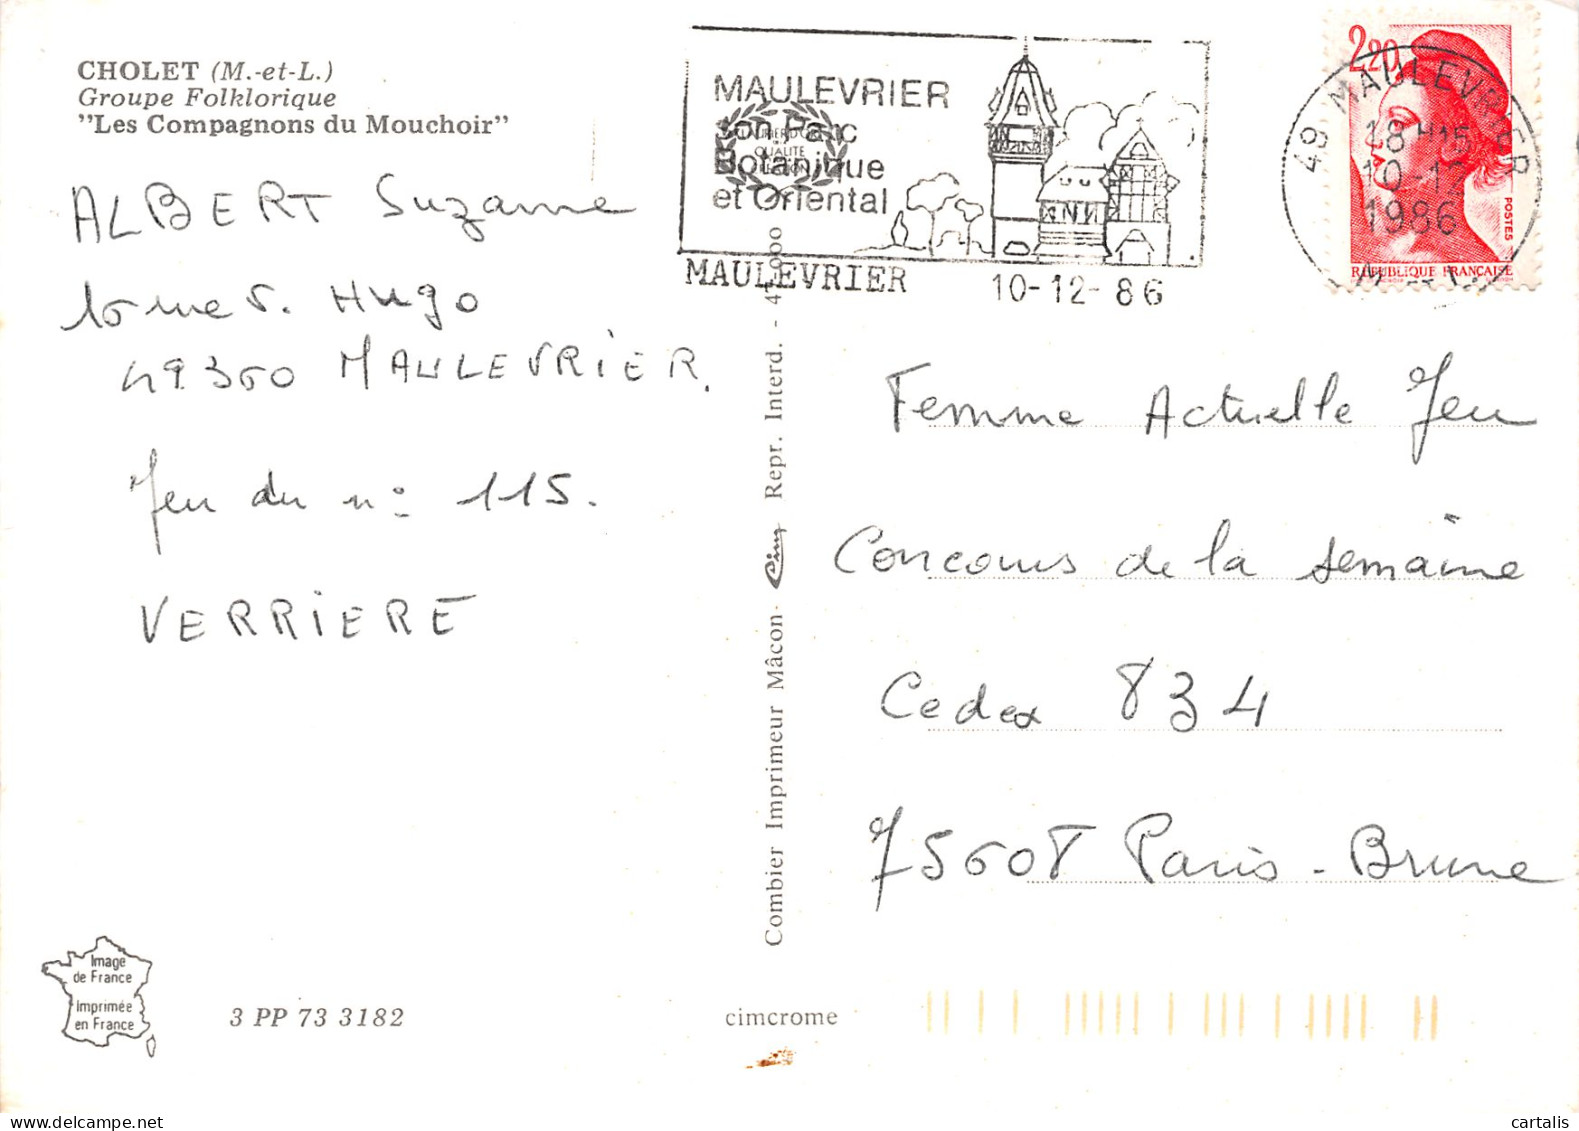 CHOLET (M.-et-L.)
Groupe Folklorique
"Les Compagnons du Mouchoir"
ALBERT Suzanne
rue V. Hugo
49360 MAULEVRIER.
Jeu du n° 115.
VERRIERE
Image
de France
Imprimée
en France
3 PP 73 3182
MAULEVRIER
son Parc
Botanique
et Oriental
QUALITE
MAULEVRIER 10-12-86
2,20
POSTES
REPUBLIQUE FRANÇAISE
49 MAULEVRIER
18 H15
10-12
1986
Combier Imprimeur Mâcon - Cim Repr. Interd. -
Femme Actuelle Jeu
Concours de la semaine
Cedex 834
75608 Paris - Brune
cimcrome
cartalis
www.delcampe.net